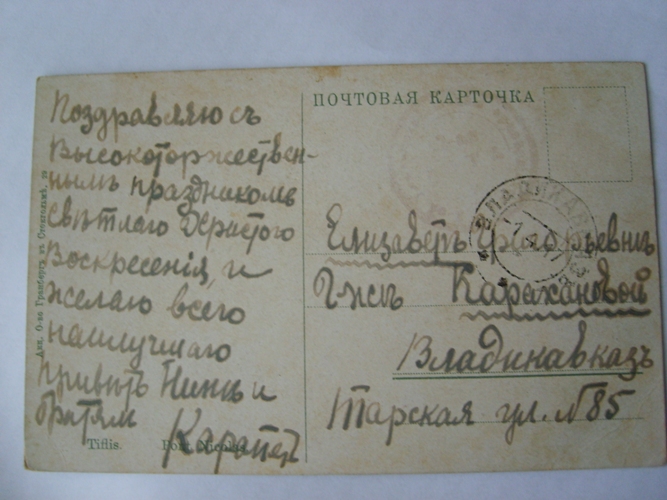 Поздравляю съ
Высокоторжествен-
нымъ праздникомъ
свѣтлаго Христого
Воскресенія, и
желаю всего
наилучшаго
Привѣтъ Нинѣ и
братям
Карапетъ
Tiflis.
Акц. О-во Гранбергъ въ Стокгольмѣ.
ПОЧТОВАЯ КАРТОЧКА
ВЛАДИКАВКАЗ
Елизаветѣ Григорьевнѣ
Г-жѣ Карахановой
Владикавказъ
Тарская ул. №85